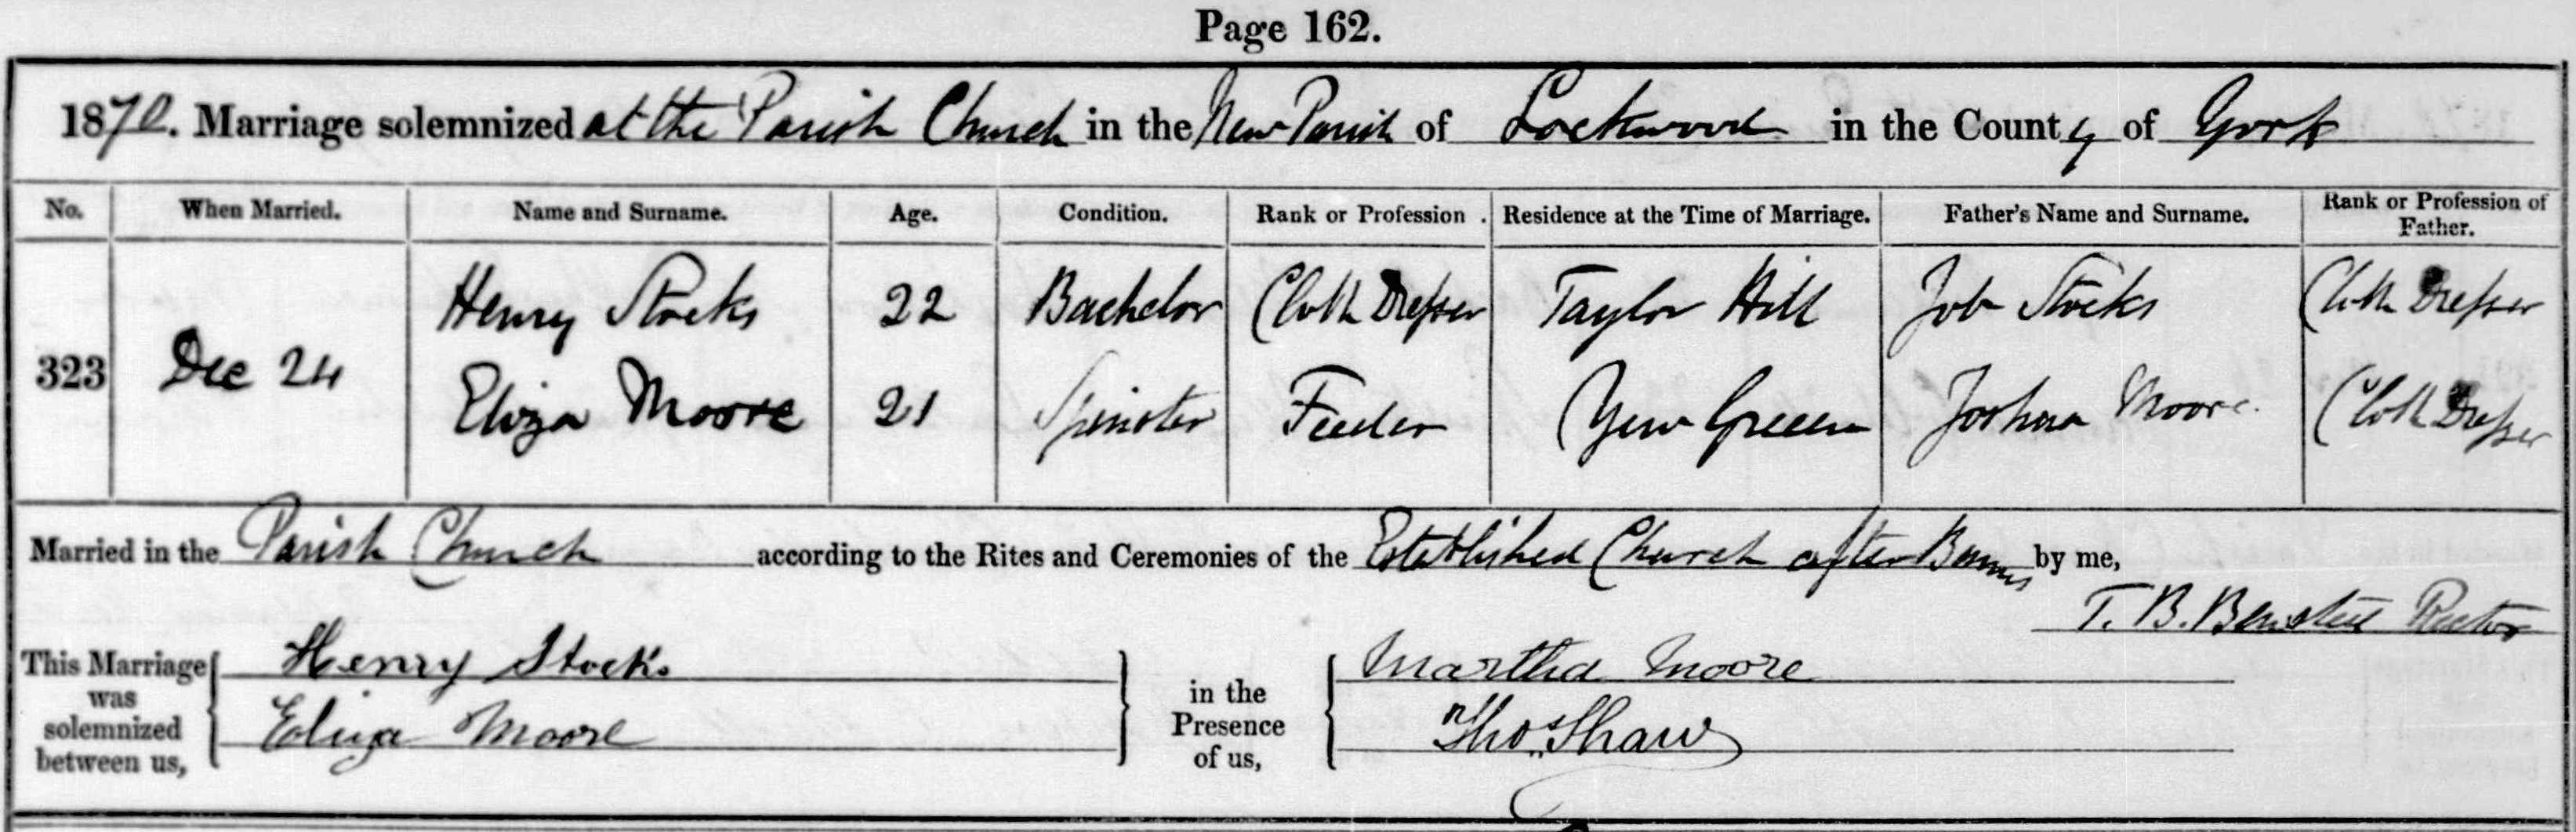 Page 162.
1870. Marriage solemnized at the Parish Church in the New Parish of Lockwood in the County of York
No. When Married. Name and Surname. Age. Condition. Rank or Profession. Residence at the Time of Marriage. Father's Name and Surname. Rank or Profession of Father.
Henry Stocks 22 Bachelor Cloth Dresser Taylor Hill Job Stocks Cloth Dresser
323 Dec 24
Eliza Moore 21 Spinster Feeder Yew Green Joshua Moore Cloth Dresser
Married in the Parish Church according to the Rites and Ceremonies of the Established Church after Banns by me,
T. B. Rector
This Marriage was solemnized between us, Henry Stocks in the Presence of us, Martha Moore
Eliza Moore Thos. Shaw